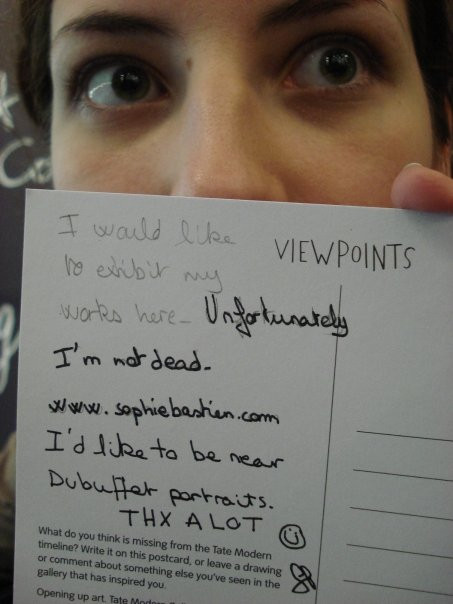 I would like
to exhibit my
works here_ Unfortunately
I'm not dead_
www.sophiebastien.com
I'd like to be near
Dubuffet portraits.
THX A LOT
VIEWPOINTS
What do you think is missing from the Tate Modern
timeline? Write it on this postcard, or leave a drawing
or comment about something else you've seen in the
gallery that has inspired you.
Opening up art. Tate Modern